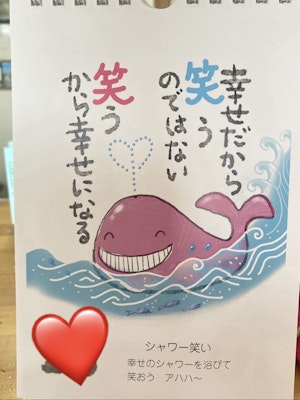 幸せだから
笑う
のではない
笑う
から幸せになる
シャワー笑い
幸せのシャワーを浴びて
笑おう　アハハ～